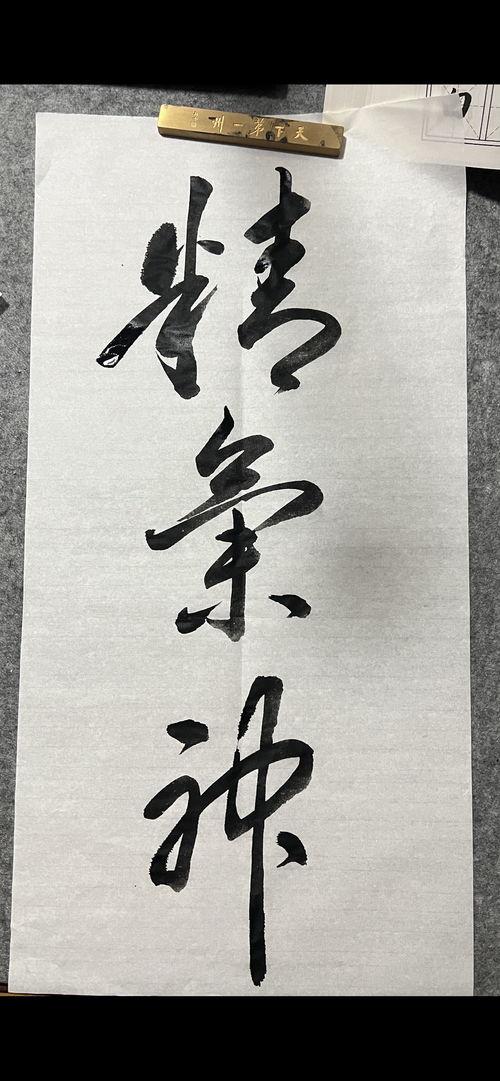 天下第一州
精氣神